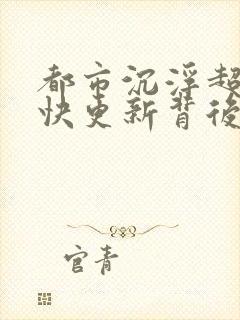 都市沉浮超
快更新背後
官青